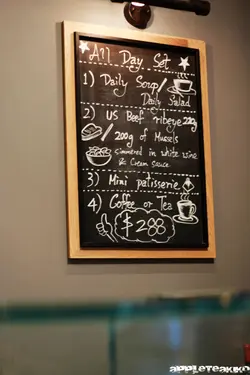 All Day Set
1) Daily Soup/
Daily Salad
2) US Beef ribeye 220g
200g of Mussels
simmered in white wine
& cream sauce
3) Mini patisserie
4) Coffee or Tea
$288
APPLETEAKIKO